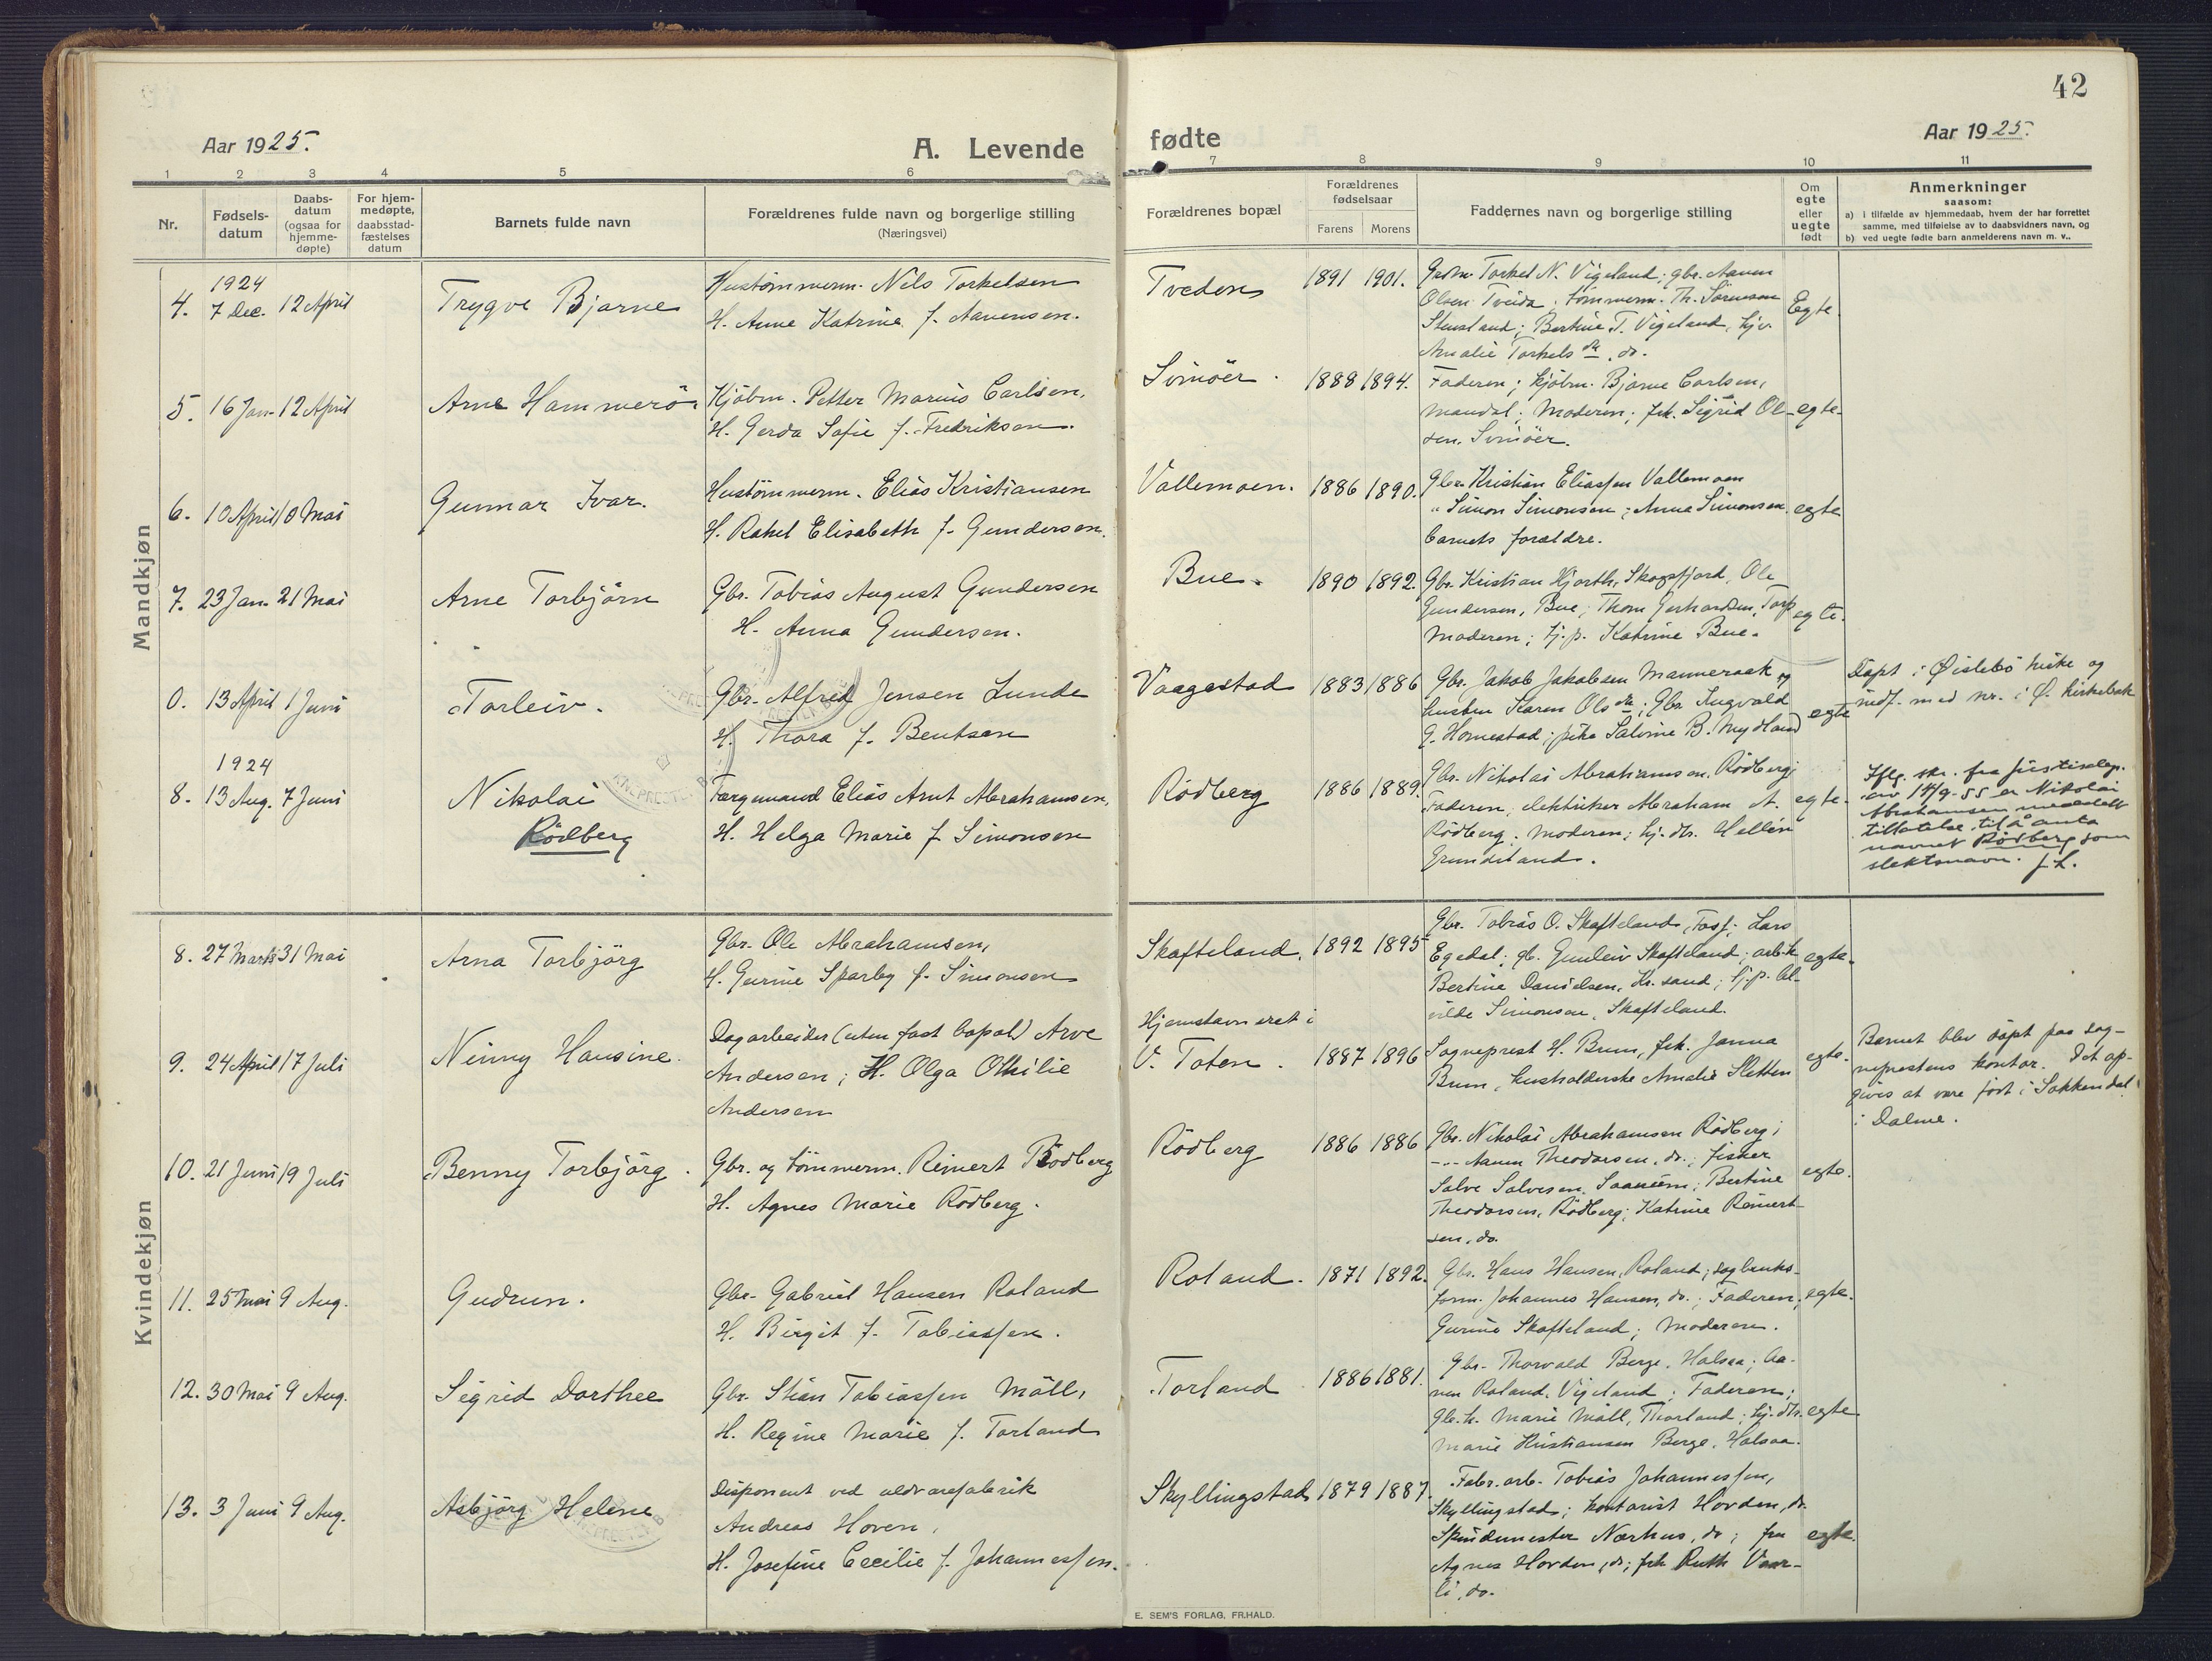 42
Aar 1925.
A. Levende
fødte
Aar 1925.
1 2 3 4 5 6 7 8 9 10 11
Nr.
Fødsels-
datum
Daabs-
datum
(ogsaa for
hjemme-
døpte)
For hjem-
medøpte,
daabsstad-
fæstelses
datum
Barnets fulde navn
Forældrenes fulde navn og borgerlige stilling
(Næringsvei)
Forældrenes bopæl
Forældrenes
fødselsaar
Farens Morens
Faddernes navn og borgerlige stilling
Om
egte
eller
uegte
født
Anmerkninger
saasom:
a) i tilfælde av hjemmedaab, hvem der har forrettet
samme, med tilføielse av to daabsvidners navn, og
b) ved uegte fødte barn anmelderens navn m. v..
Mandkjøn
4.
1924
7 Dec. 12 April
Trygve Bjarne
Hustømmerm. Nils Torkelsen
H. Anne Katrine f. Aanensen.
Tveden
1891 1901.
Torkel N. Vigeland; gbr. Aanen
Olsen Tveida, tømmerm. Th. Sørensen
Stensland; Bertine T. Vigeland, hjv.
Amalie Torkelsdtr, do.
Egte.
5. 16 Jan. 12 April
Arne Hammerö
Kjøbm. Petter Marius Carlsen,
H. Gerda Sofie f. Fredriksen.
Svinöer.
1888 1894.
Faderen; kjøbm. Bjarne Carlsen,
Mandal; Moderen; frk. Sigrid Ol-
sen, Svinöer.
egte.
6. 10 April 10 Mai
Gunnar Ivar.
Hustømmerm. Elias Kristiansen
H. Rakel Elisabeth f. Gundersen.
Vallemoen.
1886 1890.
Gbr. Kristian Eliassen Vallemoen
" Simon Simonsen; Anna Simonsen.
Barnets forældre.
egte
7. 23 Jan. 21 Mai
Arne Torbjörn
Gbr. Tobias August Gundersen
H. Anna Gundersen.
Bue.
1890 1892.
Gbr. Kristian Hjorth, Skogsfjord, Ole
Gundersen, Bue; Thom Gerhardsen, Torp
Moderen; hj.p. Katrine Bue.
egte.
0. 13 April 1 Juni
Torleiv.
Gbr. Alfred Jensen Lunde
H. Thora f. Bentsen
Vaagestad
1883 1886
Gbr. Jakob Jakobsen Manneraak og
hustru Karen Olsdtr; Gbr. Ingvald
G. Homestad; pike Salvine B. Mydland
egte
Døpt i Øislebø kirke og
indf. med nr. i Ø. kirkebok
8.
1924
13 Aug. 7 Juni
Nikolai
Rödberg
Færgemand Elias Arnt Abrahamsen,
H. Helga Marie f. Simonsen
Rödberg
1886 1889.
Gbr. Nikolai Abrahamsen, Rödberg;
Faderen; elektriker Abraham A.
Rödberg; Moderen; hj. dtr. Hellen
Grundeland.
egte.
Iflg. skr. fra justisdep.
av 14/9-55 er Nikolai
Abrahamsen meddelt
tillatelse til å anta
navnet Rödberg som
slektsnavn.
Kvindekjøn
8. 27 Marts 31 Mai
Arna Torbjörg
Gbr. Ole Abrahamsen,
H. Gurine Sparby f. Simonsen
Skafteland,
1892 1895
Gbr. Tobias O. Skafteland, Lars
Egedal; gb. Gunleiv Skafteland;
Bertine Danielsen, Kr.sand; hj.p. Al-
vilde Simonsen, Skafteland.
egte.
9. 24 April 17 Juli
Ninny Hansine.
Dagarbeider (uten fast bopæl) Arve
Andersen; H. Olga Othilie
Andersen
Hjemstavnsret i
V. Toten.
1887 1896
Sogneprest H. Brun, frk. Janna
Brun, husholderske Amalie Sletten
egte.
Barnet blev døpt paa sog-
neprestens kontor. Det op-
gives at være født i Sokkendal
i Dalene.
10. 21 Juni 19 Juli
Benny Torbjörg.
Gbr. og tømmerm. Reinert Rödberg
H. Agnes Marie Rödberg.
Rödberg
1886 1886
Gbr. Nikolai Abrahamsen Rödberg;
Aanen Theodorsen, do.; fisker
Salve Salvesen, Bertine
Theodorsen, Rödberg; Katrine Reinert-
sen, do.
egte.
11. 25 Mai 9 Aug.
Gudrun.
Gbr. Gabriel Hansen Roland
H. Birgit f. Tobiassen.
Roland.
1871 1892.
Gbr. Hans Hansen, Roland; sagbruks-
form. Johannes Hansen, do.; Faderen;
Gurine Skafteland; Moderen.
egte.
12. 30 Mai 9 Aug.
Sigrid Dorthee
Gbr. Stian Tobiassen Möll,
H. Regine Marie f. Torland
Torland
1886 1881.
Gbr. Thorvald Berge, Halsaa; Aa-
nen Roland, Vigeland; Faderen;
Marie Möll, Thorland; hj. dtr.
Marie Kristiansen Berge, Halsaa.
egte
13. 3 Juni 9 Aug.
Asbjörg Helene
Disponent ved uldvarefabrik
Andreas Hoven,
H. Josefine Cecilie f. Johannessen.
Skyllingstad
1879 1887.
Fabr.arb. Tobias Johannessen,
Skyllingstad; kontorist Hovden, do.
Spindemester Nærhus, do; fru
Agnes Hovden, do; frk Ruth Vaar-
li, do.
egte.
E. SEM'S FORLAG, FR.HALD.